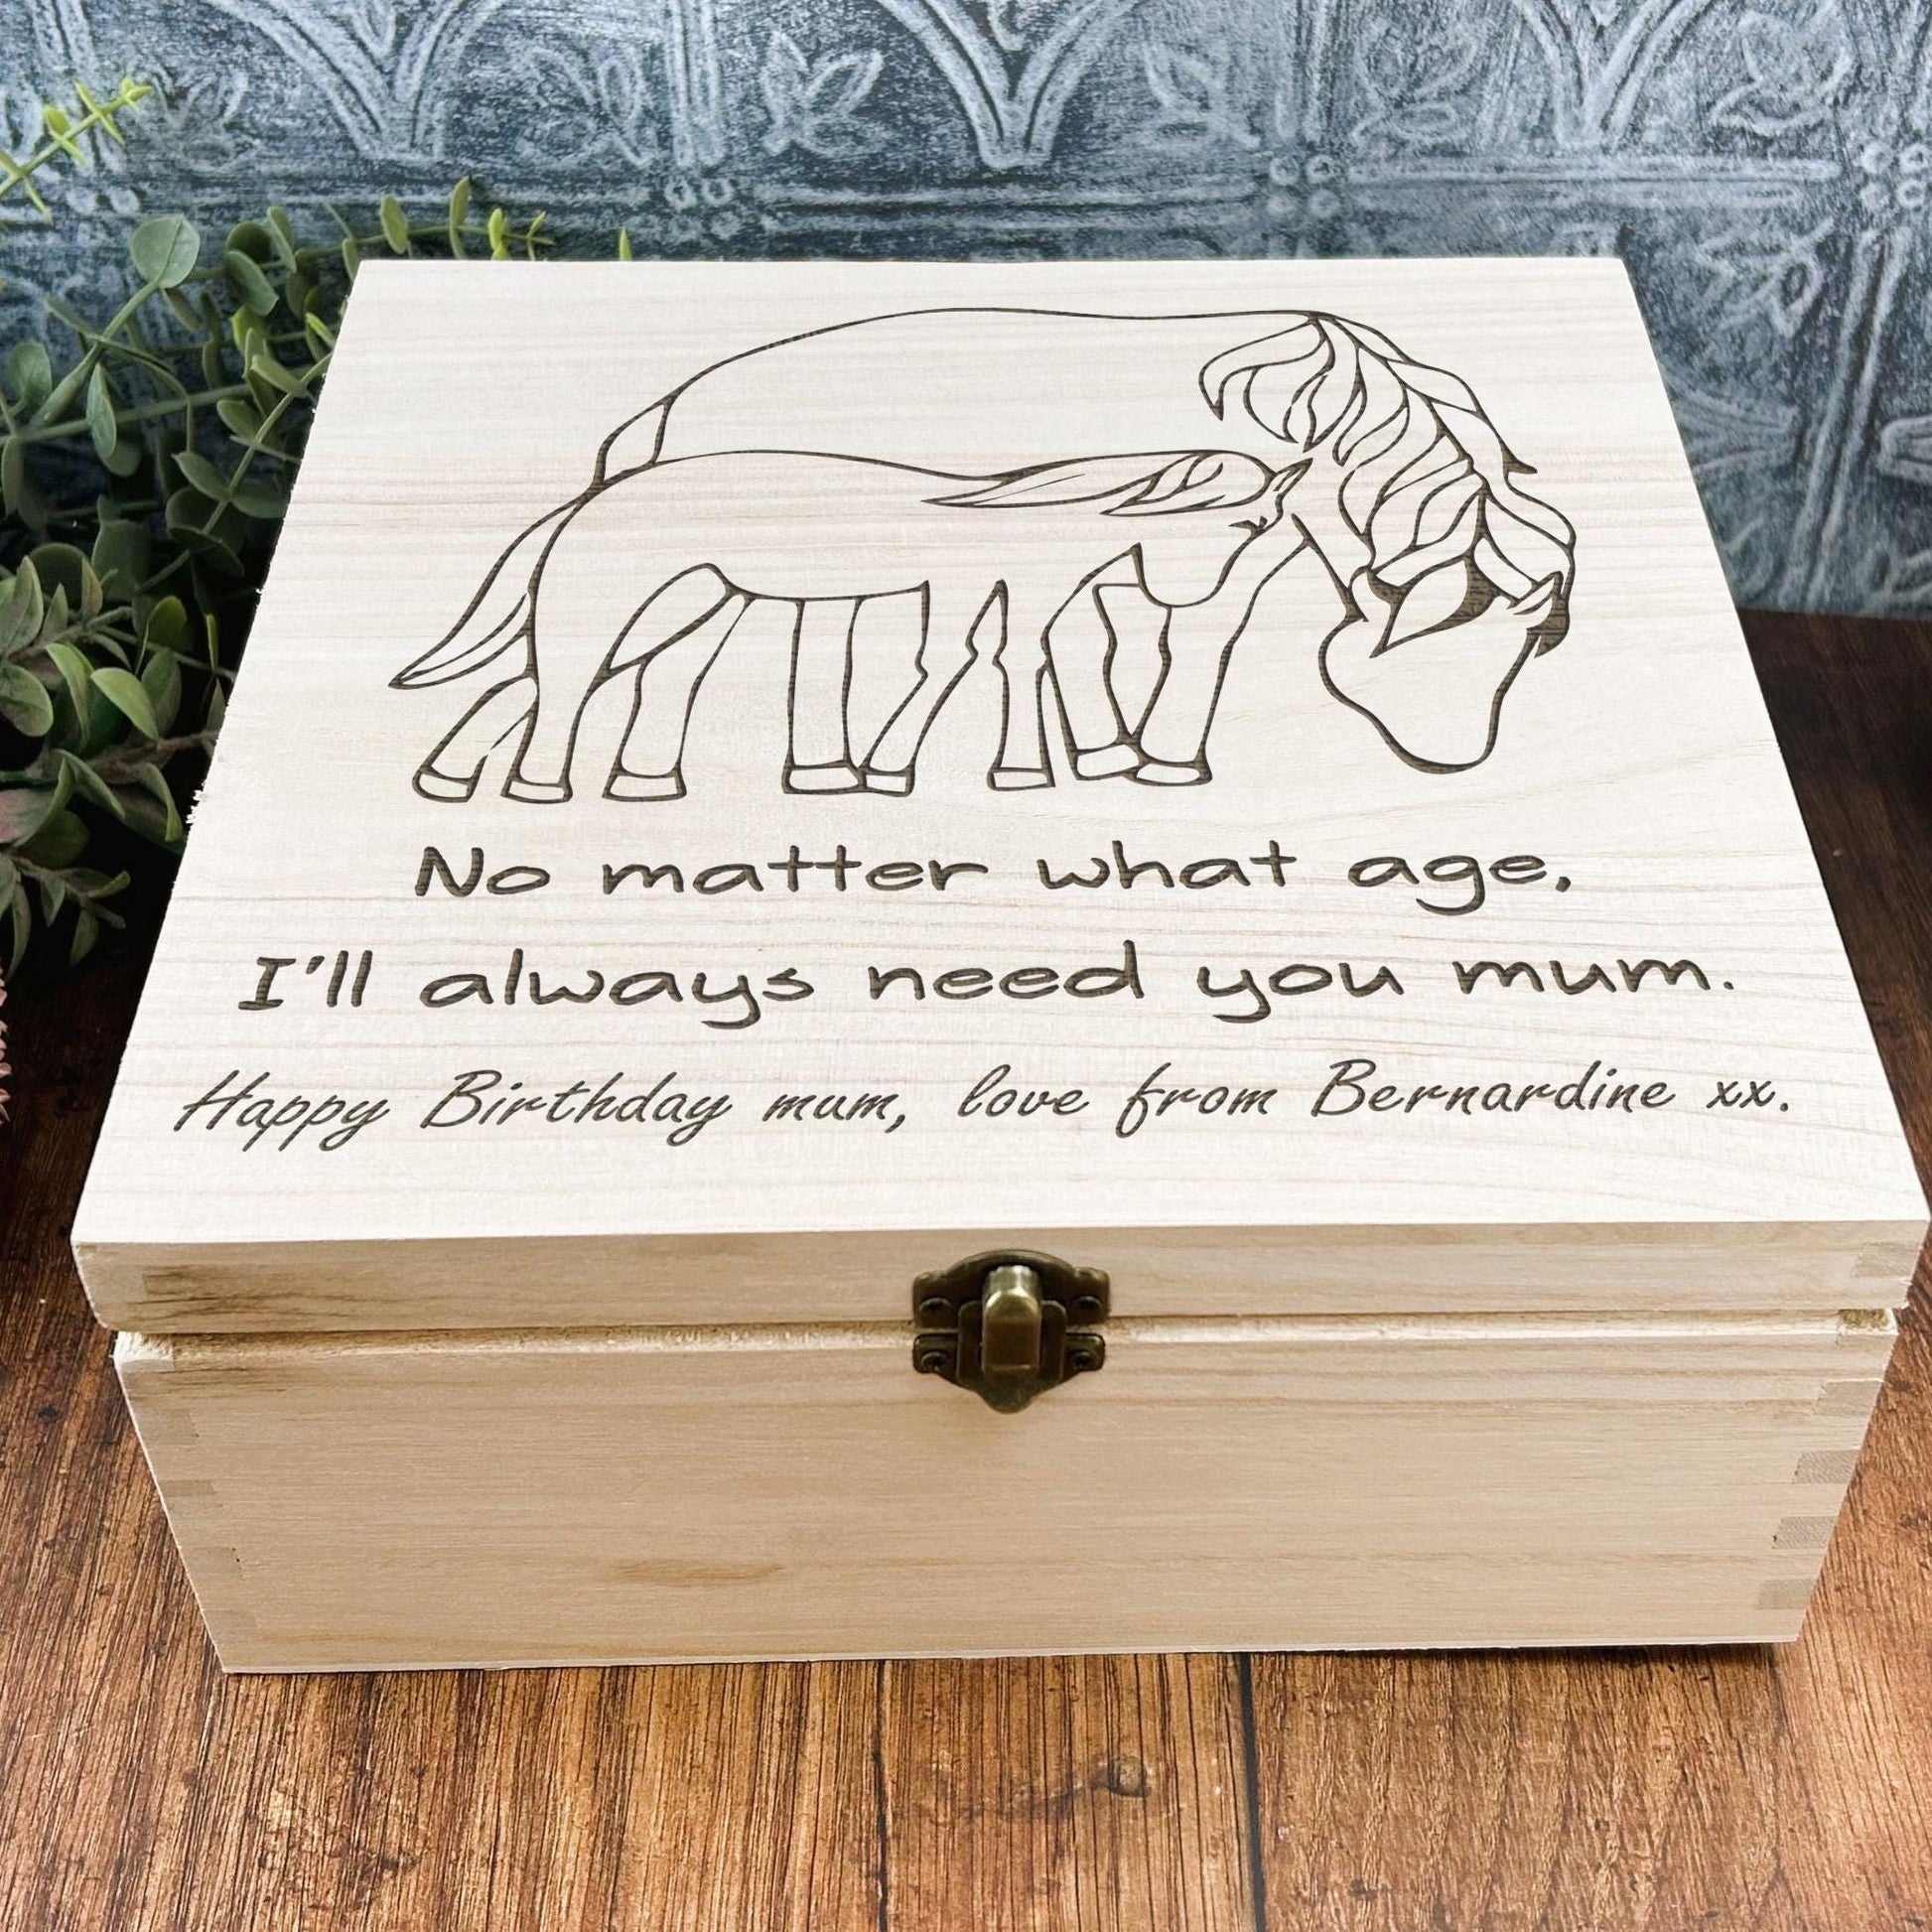 No matter what age,
I'll always need you mum.
Happy Birthday mum, love from Bernardine xx.